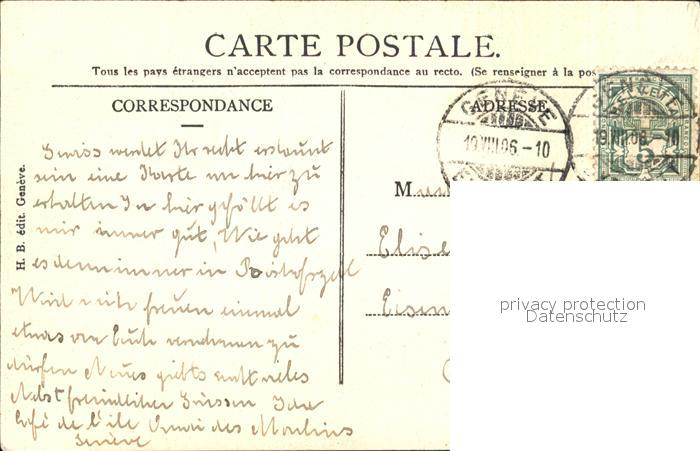 CARTE POSTALE.
Tous les pays étrangers n'acceptent pas la correspondance au recto. (Se renseigner à la pos
CORRESPONDANCE
ADRESSE
GENÈVE
19.VIII.06-10
GENÈVE
19.VIII.06-10
5
H. B. édit. Genève.
Gewiss werdet Ihr recht erstaunt
sein eine Karte von hier zu
erhalten In hier gefällt es
mir immer gut, Wie geht
es denn immer in Bischofszell
Wird mich freuen einmal
etwas von Euch vernehmen zu
dürfen Neues giebts nicht vieles
Nebst freundlichen Grüssen Ida
Café de l'île Quai des Moulins
Genève
M
Elise
Eisen
privacy protection
Datenschutz